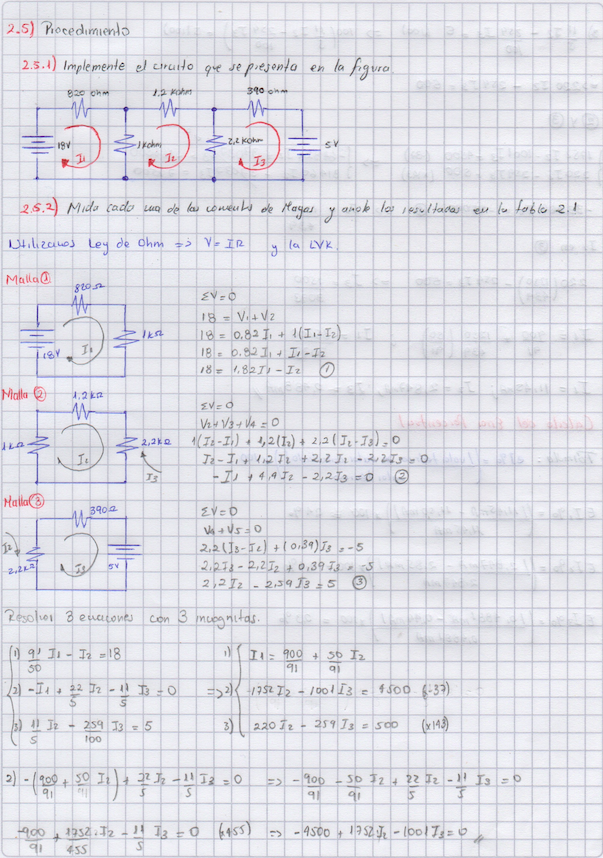 2.5) Procedimiento
2.5.1) Implemente el circuito que se presenta en la figura.
820 ohm 1.2 Kohm 390 ohm
18V I1 1kohm I2 2.2 Kohm I3 5V
2.5.2) Mida cada una de las corrientes de Mayas y anote los resultados en la tabla 2.1
Utilizamos Ley de Ohm => V = IR y la LVK.
Malla ①
820Ω
18V I1 1kΩ
ΣV=0
18 = V1 + V2
18 = 0,82 I1 + 1(I1-I2)
18 = 0.82 I1 + I1 - I2
18 = 1,82 I1 - I2 ①
Malla ②
1,2 kΩ
1kΩ I2 2,2kΩ
I3
ΣV=0
V2+V3+V4 = 0
1(I2-I1) + 1,2(I2) + 2,2(I2-I3) = 0
I2 - I1 + 1,2 I2 + 2,2 I2 - 2,2 I3 = 0
- I1 + 4,4 I2 - 2,2 I3 = 0 ②
Malla ③
390Ω
I2 2,2kΩ I3 5V
ΣV=0
V4 + V5 = 0
2,2(I3-I2) + (0,39) I3 = -5
2,2 I3 - 2,2 I2 + 0,39 I3 = -5
2,2 I2 - 2,59 I3 = 5 ③
Resolver 3 ecuaciones con 3 incognitas.
1) 91/50 I1 - I2 = 18
2) -I1 + 22/5 I2 - 11/5 I3 = 0
3) 11/5 I2 - 259/100 I3 = 5
1) I1 = 900/91 + 50/91 I2
=> 2) 1752 I2 - 1001 I3 = 4500 (-37)
3) 220 I2 - 259 I3 = 500 (x143)
2) -(900/91 + 50/91 I2) + 22/5 I2 - 11/5 I3 = 0 => -900/91 - 50/91 I2 + 22/5 I2 - 11/5 I3 = 0
-900/91 + 1752/455 I2 - 11/5 I3 = 0 (x455) => -4500 + 1752 I2 - 1001 I3 = 0